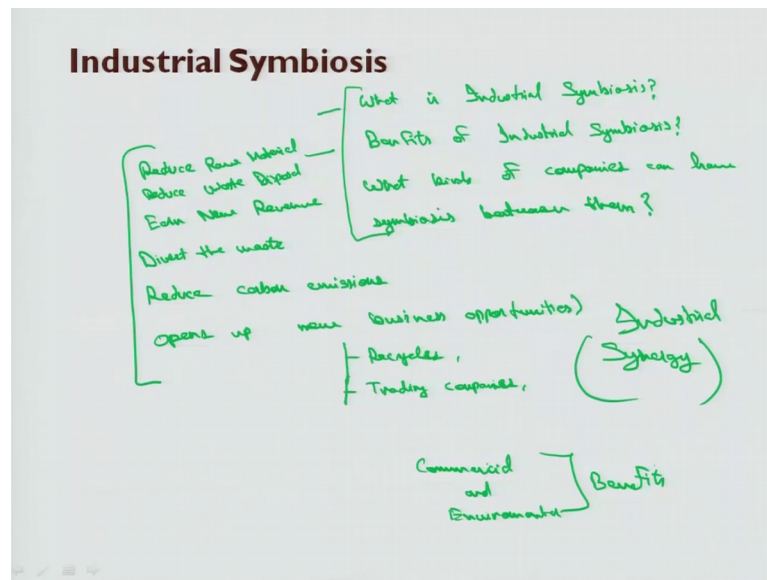 Industrial Symbiosis
What is Industrial Symbiosis?
Benefits of Industrial Symbiosis?
What kinds of companies can have
symbiosis between them?
Reduce Raw Material
Reduce Waste Disposal
Earn New Revenue
Divert the waste
Reduce carbon emissions
opens up new business opportunities)
Recycles,
Trading companies,
Industrial
(Synergy)
Commercial
and
Environmental
Benefits